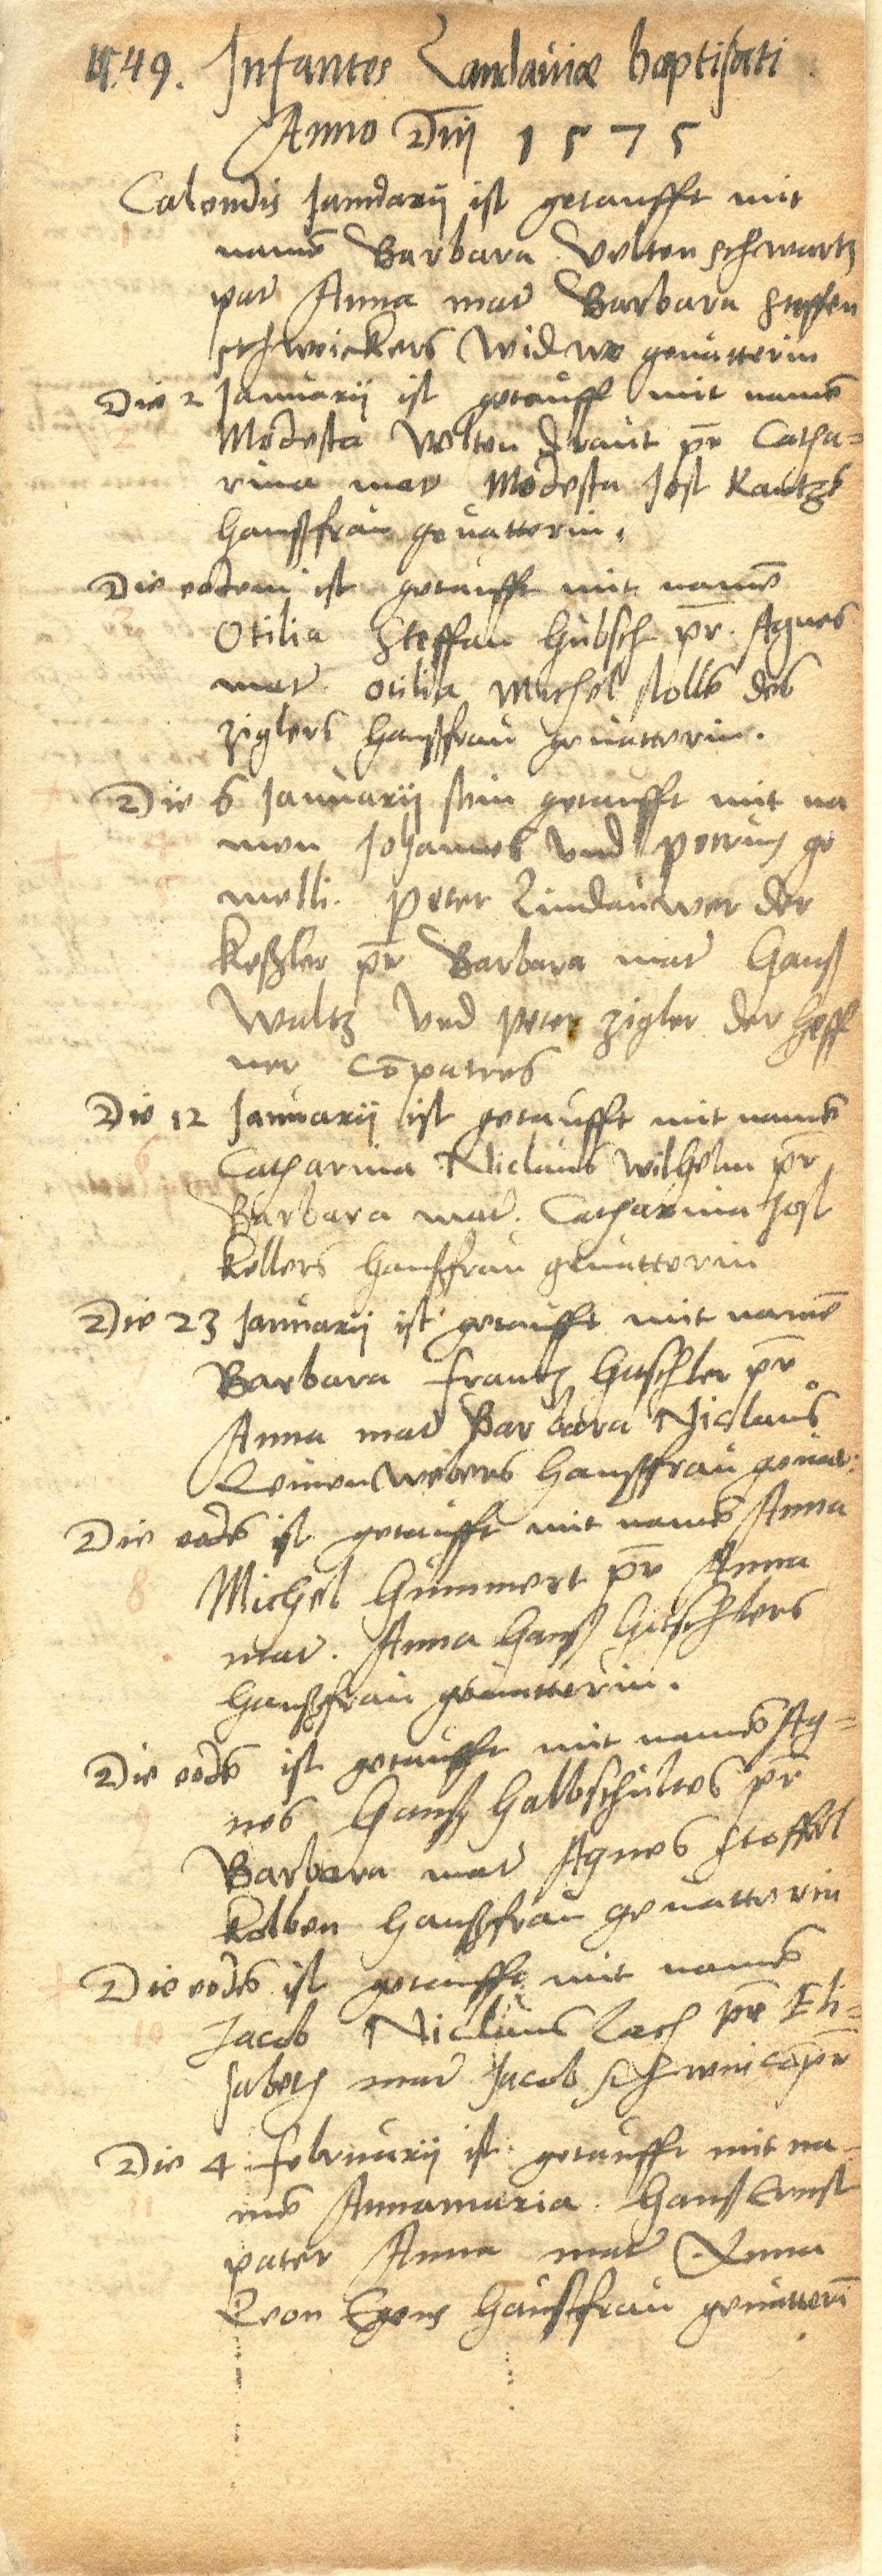 49. Infantes Landaviae baptisati
Anno Dnj 1575
Calendis Januarij ist getaufft mit
namē Barbara Velten schwartz
pat Anna mat Barbara steffen
schweickers widwe gevatterin
Die 2 Januarij ist getauff mit namē
Modesta Velten Kraut pr Catha=
rina mat Modesta Jost Kautzs
haußfrau gevatterin.
Die eodem ist getaufft mit namē
Otilia Steffan Hübsch pr. Agnes
mat Otilia Michel stolls des
ziglers haußfrau gevatterin.
Die 6 Januarij sein getaufft mit na
men Johannes und petrus ge
melli. Peter Lindauwer der
Keßler pr Barbara mat Hanß
Waltz und peter zigler der heff
ner cōpatres
Die 12 Januarij ist getaufft mit namē
Catharina Niclaus Wilhelm pr
Barbara mat. Catharina Jost
Kellers haußfrau gevatterin
Die 23 Januarij ist getaufft mit namē
Barbara frantz haschler pr
Anna mat Barbara Niclaus
Leinenwebers haußfrau gevat:
Die eodē ist getaufft mit namē Anna
8
Michel Hummert pr Anna
mat. Anna Hanß hetschlers
haußfrau gevatterin.
Die eodē ist getaufft mit namē Ag=
nes Hanß Halbschultes pr
Barbara mat Agnes stoffel
Kolben haußfrau gevatterin
Die eodē ist getaufft mit namē
10
Jacob Niclaus Lech pr Eli=
sabeth mat Jacob schwin cōpr
Die 4 februarij ist getaufft mit na=
mē Annamaria. Hanß Ernst
pater Anna mat Anna
Leon Egens haußfrau gevatterī